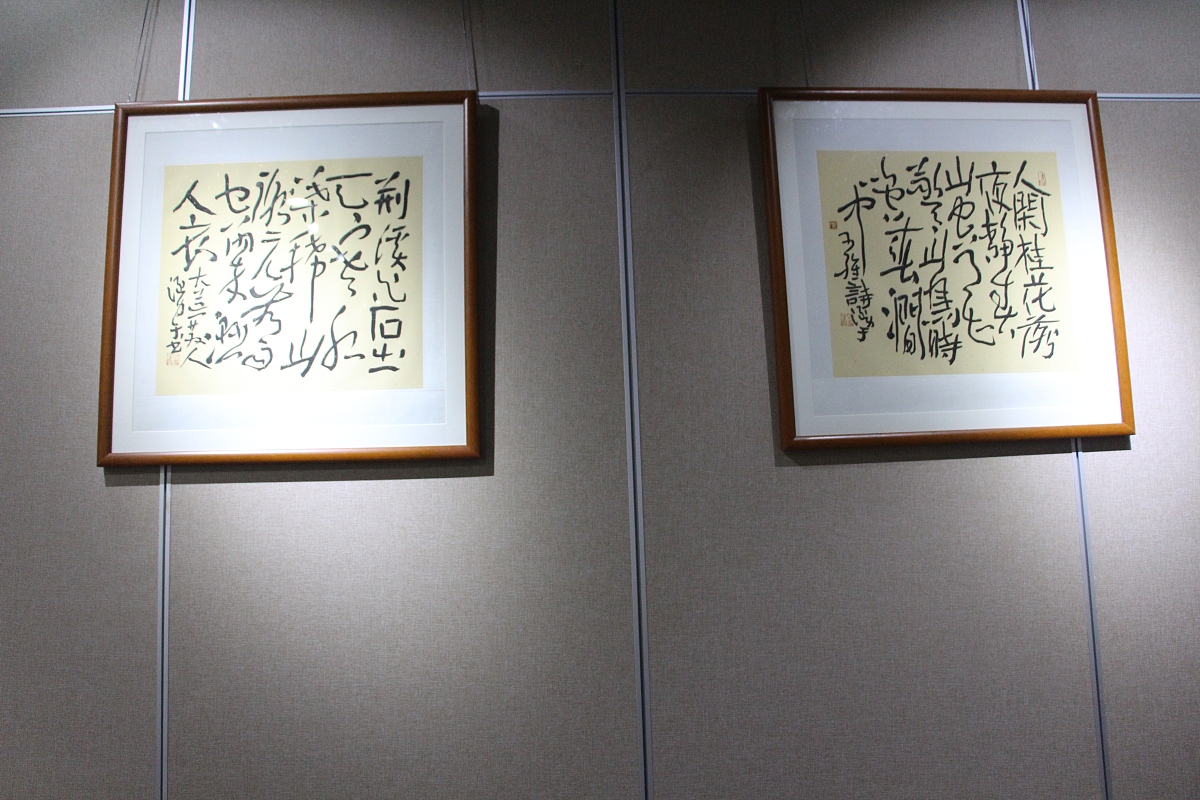 人閑桂花落
夜静春
山空月出
驚山鳥時
鳴春澗
中
王維詩
荆溪白石出
天寒红
葉稀山
路元無雨
人衣